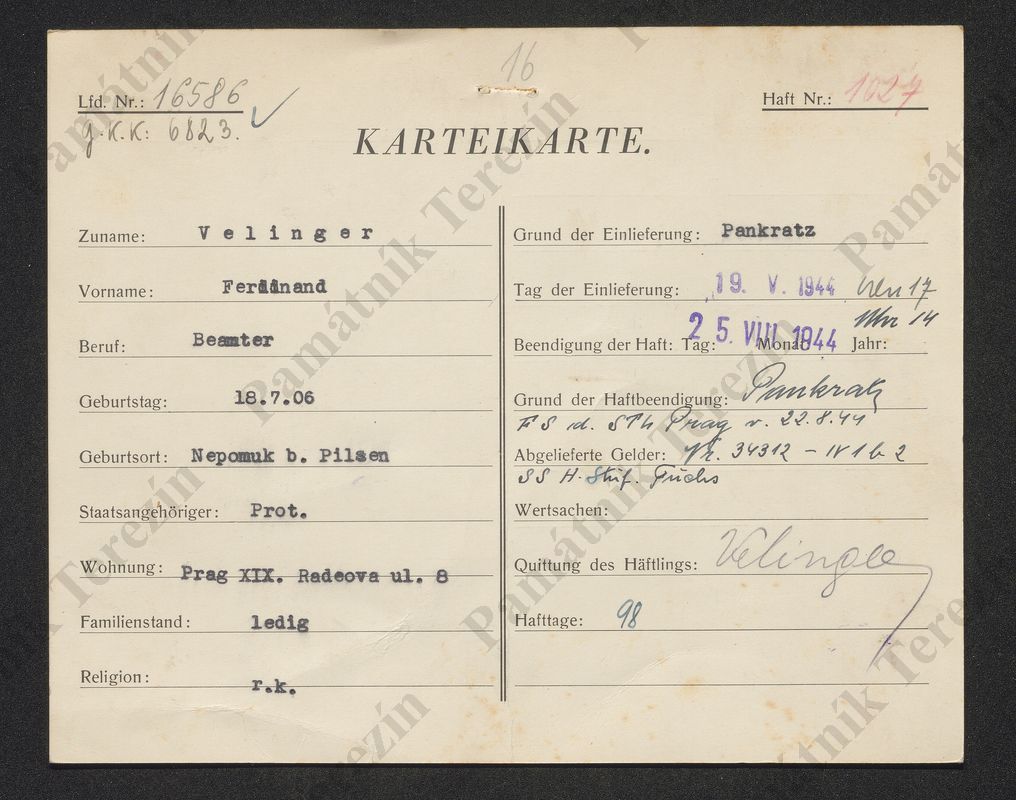 16
Lfd. Nr.: 16586
Haft Nr.: 1027
g.K.K: 6823.
KARTEIKARTE.
Zuname: Velinger
Vorname: Ferdinand
Beruf: Beamter
Geburtstag: 18.7.06
Geburtsort: Nepomuk b. Pilsen
Staatsangehöriger: Prot.
Wohnung: Prag XIX. Radeova ul. 8
Familienstand: ledig
Religion: r.k.
Grund der Einlieferung: Pankratz
Tag der Einlieferung: 19. V. 1944 17
Uhr 14
Beendigung der Haft: Tag: 25. Monat VIII 1944 Jahr:
Grund der Haftbeendigung: Pankratz
FS d. Prag v. 22.8.44
Abgelieferte Gelder: Nr. 34312 - IV 1 b 2
SS H. Stuf. Fuchs
Wertsachen:
Quittung des Häftlings: Velinger
Hafttage: 98
Památník Terezín
Památník Terezín
Památník Terezín
Památník Terezín